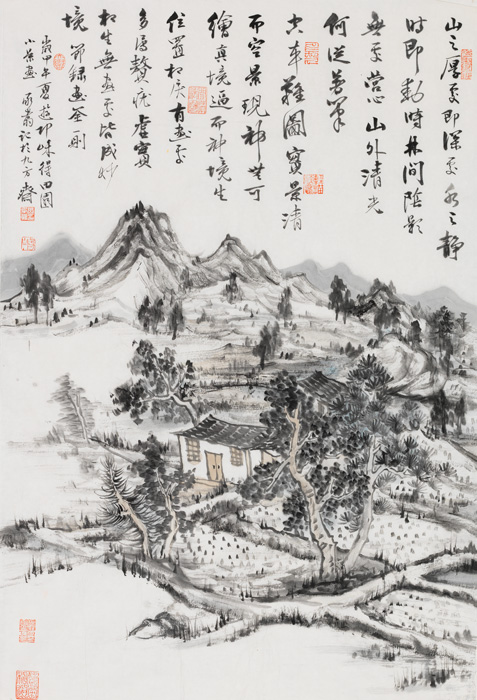 山之厚處即深處水之静
時即動時林間陰影
無處營心山外清光
何從着筆
空本難圖實景清
而空景現神無可
繪真境逼而神境生
位置相戾有畫處
多属贅疣虚實
相生無畫處皆成妙
境 節録畫筌一則
歲甲午夏遊邛崍得田園
小景畫 記於九方齋